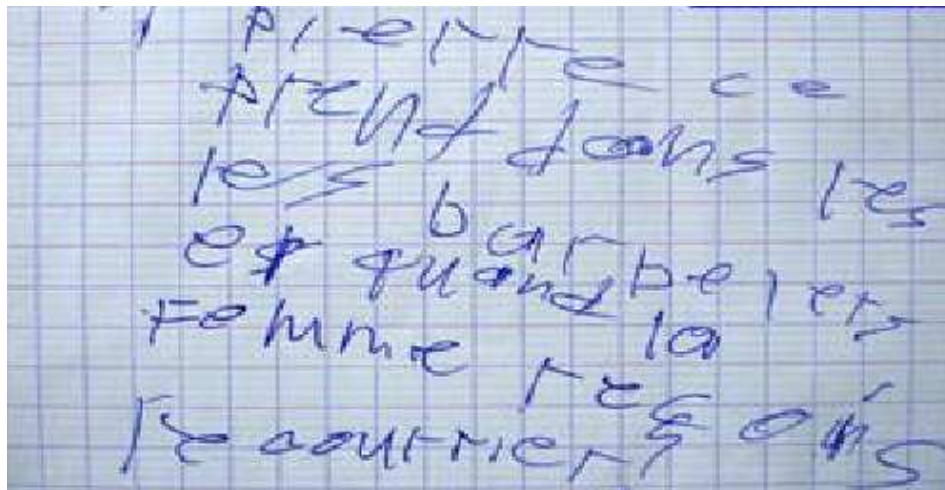 Pierre ce
prend dans les
les barbelers
et quand la
Femme res
le courriers